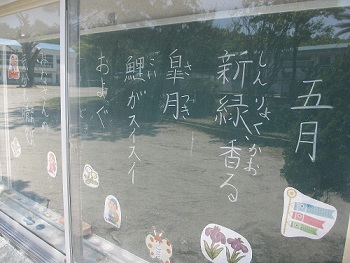 五月
しんりょくかお
新緑香る
さつき
皐月
こい
鯉がスイスイ
およぐ